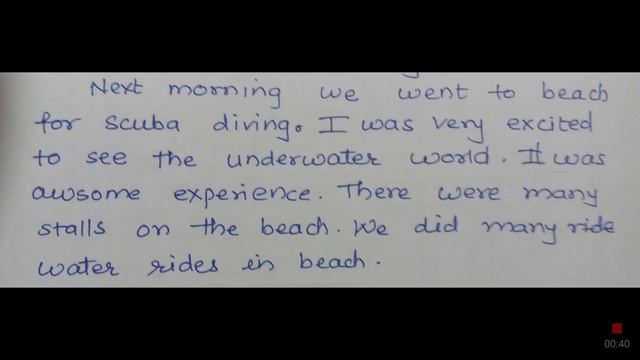 Next morning we went to beach
for scuba diving. I was very excited
to see the underwater world. It was
awsome experience. There were many
stalls on the beach. We did many ride
water rides in beach.
00:40